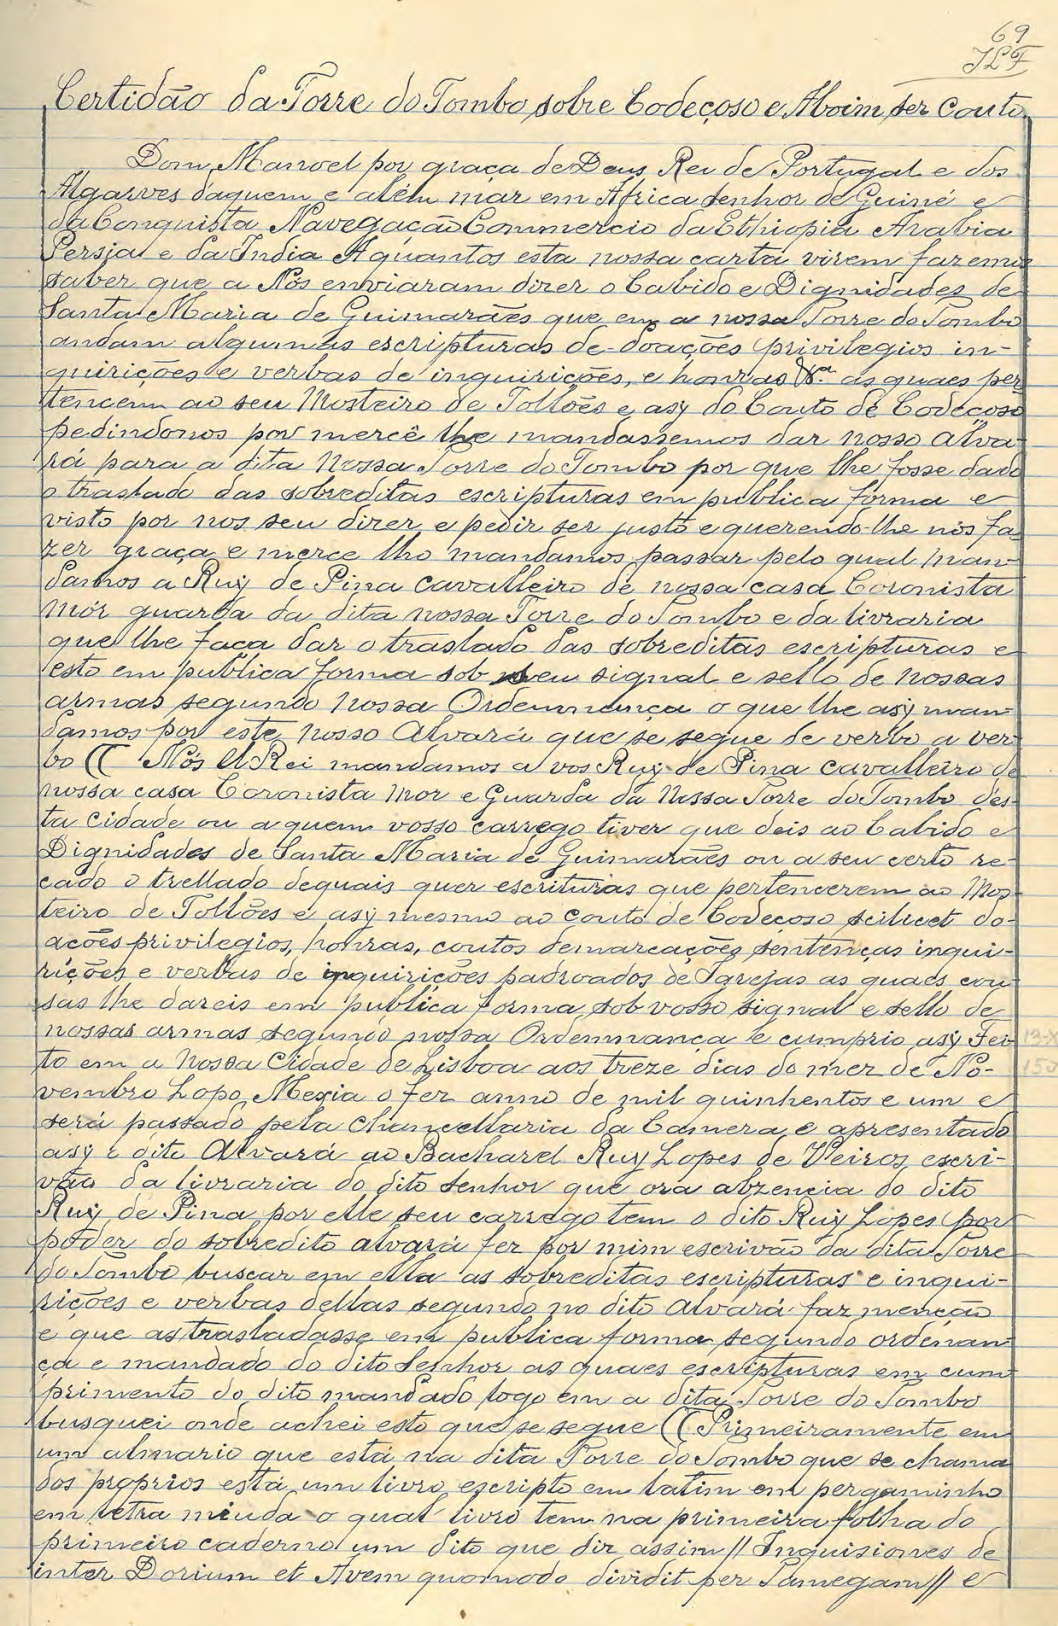 69
Certidão da Torre do Tombo sobre Codeçoso e Aboim ser Couto
Dom Manoel por graça de Deus Rei de Portugal e dos
Algarves daquem e além mar em Africa Senhor de Guiné e
da Conquista Navegação Commercio da Ethiopia Arabia
Persia e da India A quantos esta nossa carta virem fazemos
saber que a Nós enviaram dizer o Cabido e Dignidades de
Santa Maria de Guimarães que em a nossa Torre do Tombo
andam algumas escripturas de doações privilegios in-
quirições e verbas de inquirições, e honras &.ª as quaes per
tencem ao seu Mosteiro de Tollões e asy do Couto de Codeçoso
pedindonos por mercê lhe mandassemos dar nosso Alva-
rá para a dita Nossa Torre do Tombo por que lhe fosse dado
o traslado das sobreditas escripturas em publica forma e
visto por nos seu dizer e pedir ser justo e querendo-lhe nós fa-
zer graça e merce lho mandamos passar pelo qual man-
damos a Ruy de Pina cavalleiro de nossa casa Coronista
Mór guarda da dita nossa Torre do Tombo e da livraria
que lhe faça dar o traslado das sobreditas escripturas e
esto em publica forma sob seu signal e sello de nossas
armas segundo nossa Ordennança o que lhe asy man-
damos por este nosso Alvará que se segue de verbo a ver-
bo (( Nós El Rei mandamos a vos Ruy de Pina cavalleiro de
nossa casa Coronista Mor e Guarda da Nossa Torre do Tombo des-
ta Cidade ou a quem vosso carrego tiver que deis ao Cabido e
Dignidades de Santa Maria de Guimarães ou a seu certo re-
cado o trellado dequais quer escrituras que pertencerem ao Mos-
teiro de Tollões e asy mesmo ao Couto de Codeçoso scilicet do-
ações privilegios, honras, coutos demarcações sentenças inqui-
rições e verbas de inquirições padroados de Igrejas as quaes cou
sas lhe dareis em publica forma sob vosso signal e sello de
nossas armas segundo nossa Ordennança e cumprio asy Fei-
to em a Nossa Cidade de Lisboa aos treze dias do mez de No-
vembro Lopo Mexia o fez anno de mil quinhentos e um e
será passado pela Chancellaria da Camera e apresentado
asy o dito Alvará ao Bacharel Ruy Lopes de Veiros escri-
vão da livraria do dito Senhor que ora abzencia do dito
Ruy de Pina por elle seu carrego tem o dito Ruy Lopes por
poder do sobredito alvará fez por mim escrivão da dita Torre
do Tombo buscar em ella as sobreditas escripturas e inqui-
rições e verbas dellas segundo no dito Alvará faz menção
e que as trasladasse em publica forma segundo ordenan-
ça e mandado do dito Senhor as quaes escripturas em cum
primento do dito mandado logo em a dita Torre do Tombo
busquei onde achei esto que se segue (( Primeiramente em
um almario que está na dita Torre do Tombo que se chama
dos proprios está um livro escripto em latim em pergaminho
em letra miuda o qual livro tem na primeira folha do
primeiro caderno um dito que diz assim // Inquisiones de
inter Dorium et Avem quomodo dividit per Tamegam // e